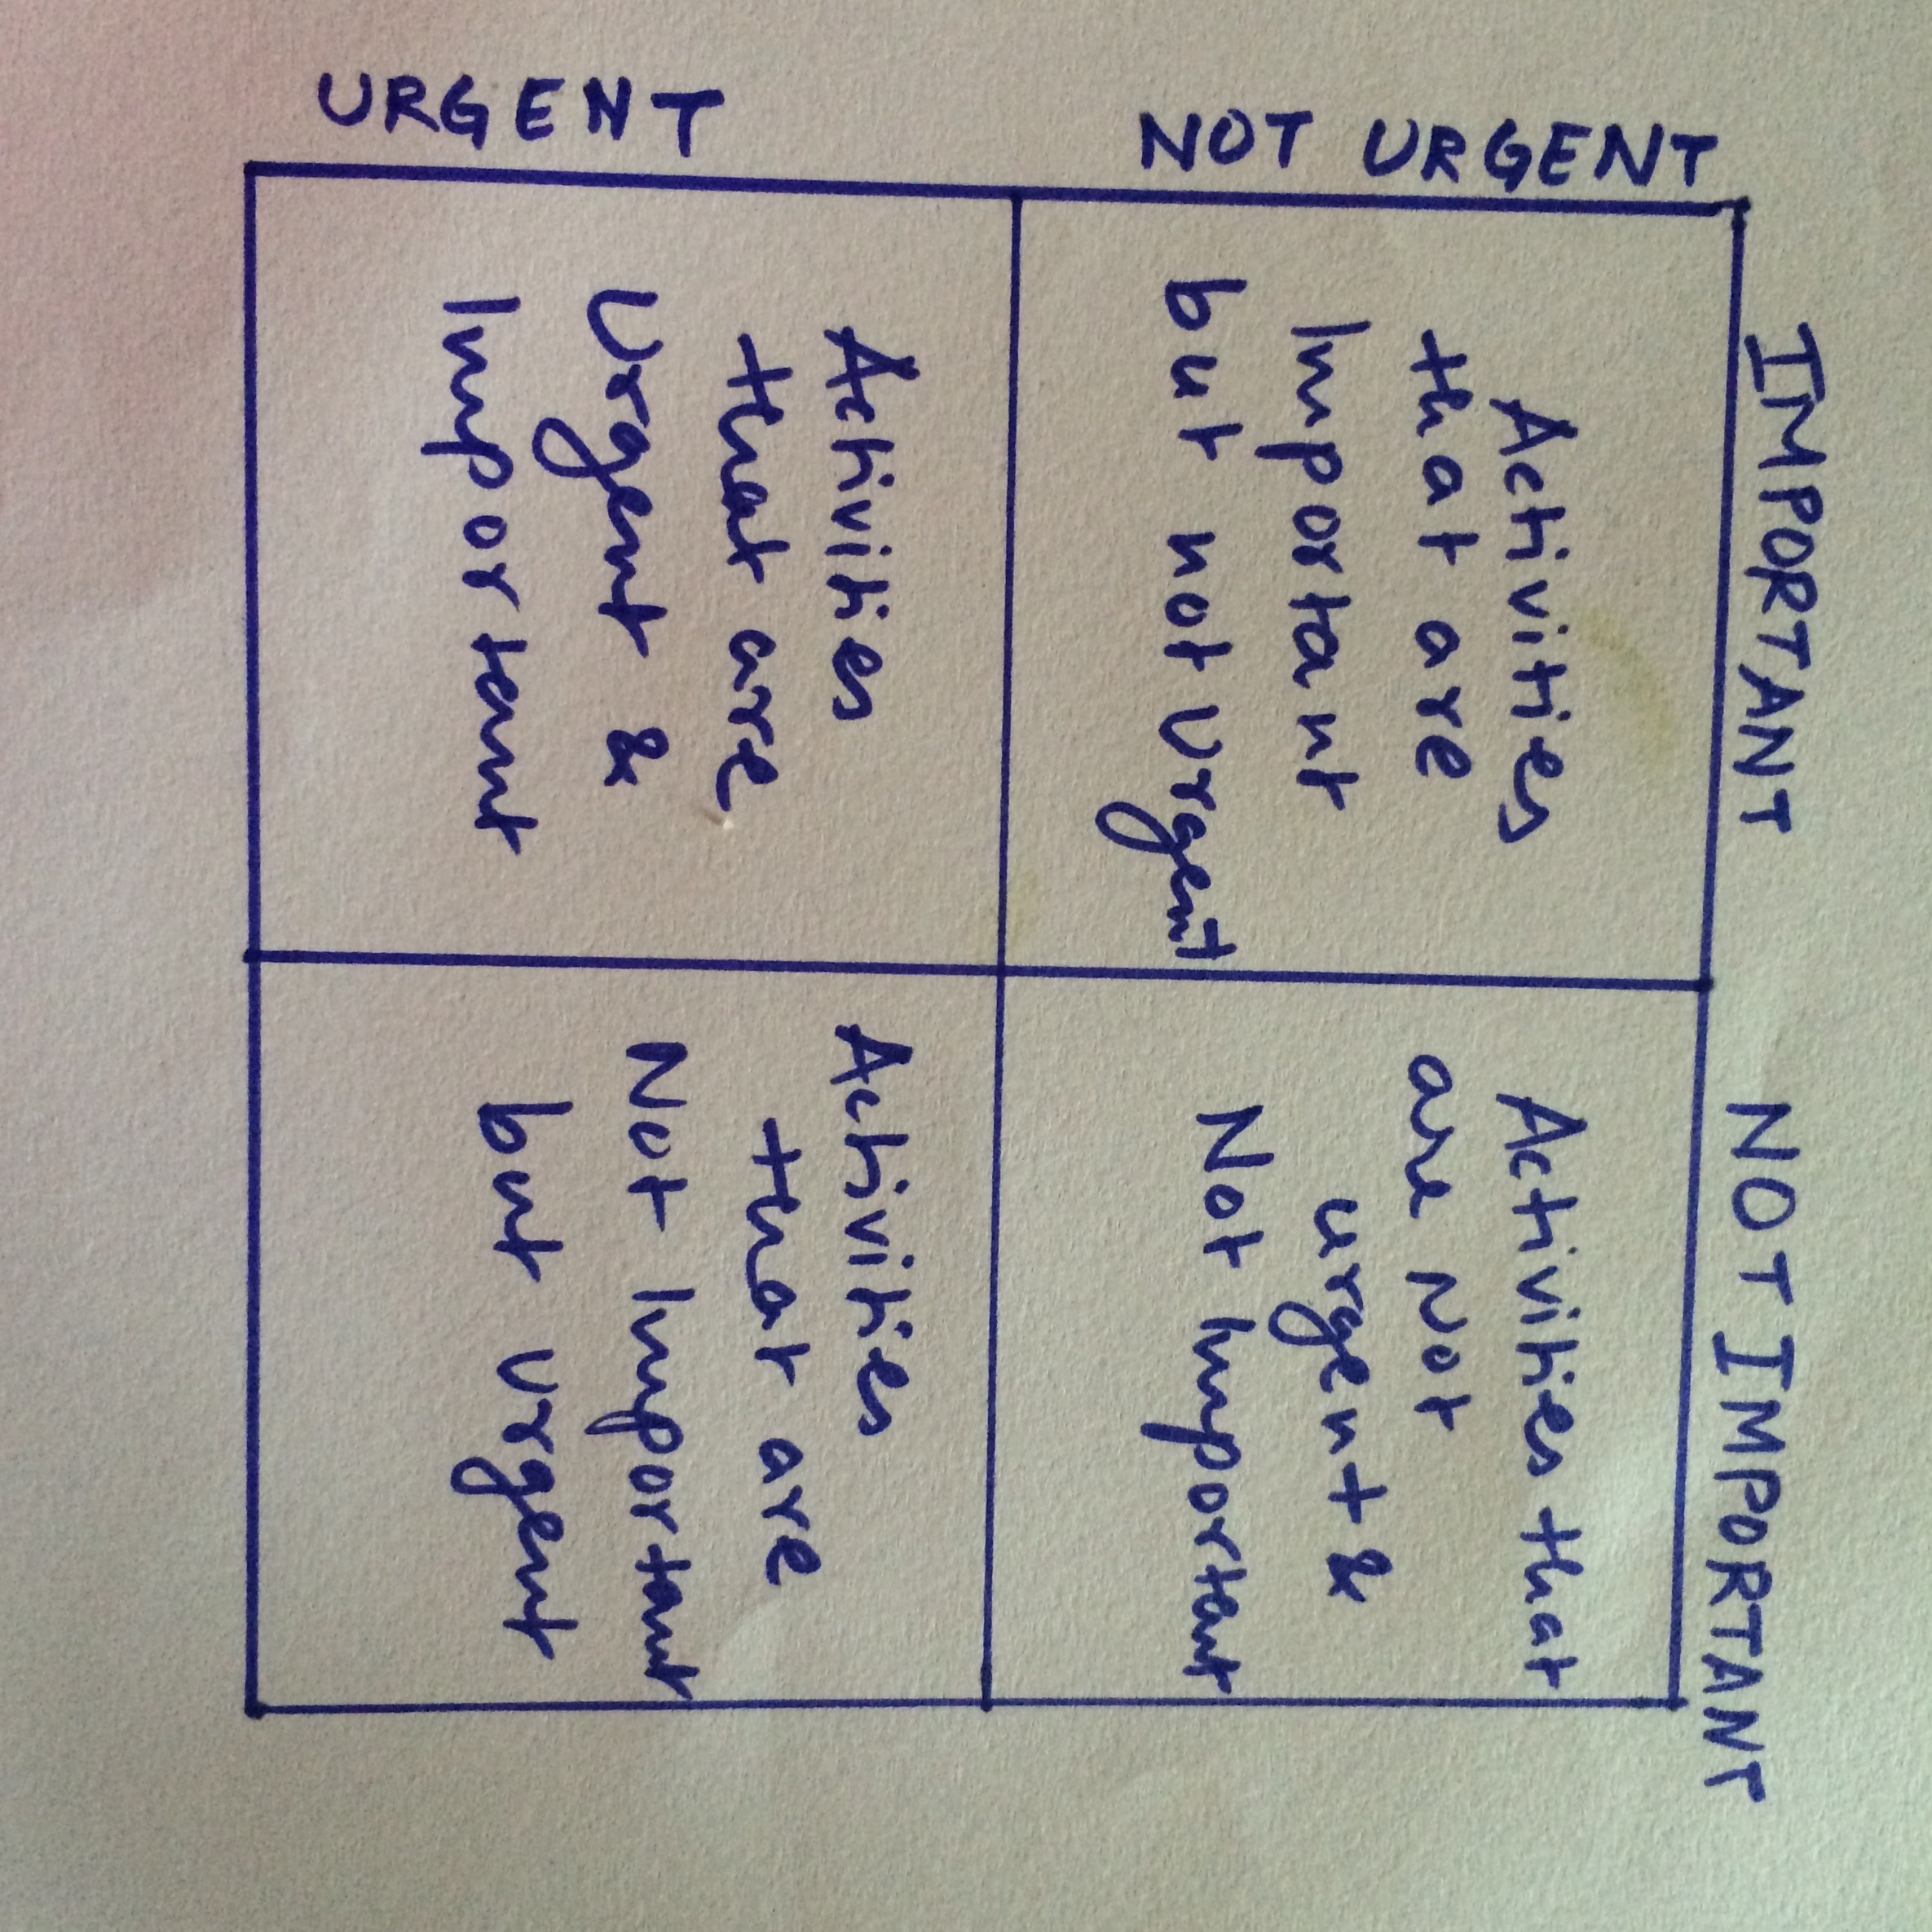 URGENT
NOT URGENT
IMPORTANT
NOT IMPORTANT
Activities
that are
Urgent &
Important
Activities
that are
Important
but not Urgent
Activities
that are
Not Important
but Urgent
Activities that
are Not
urgent &
Not Important